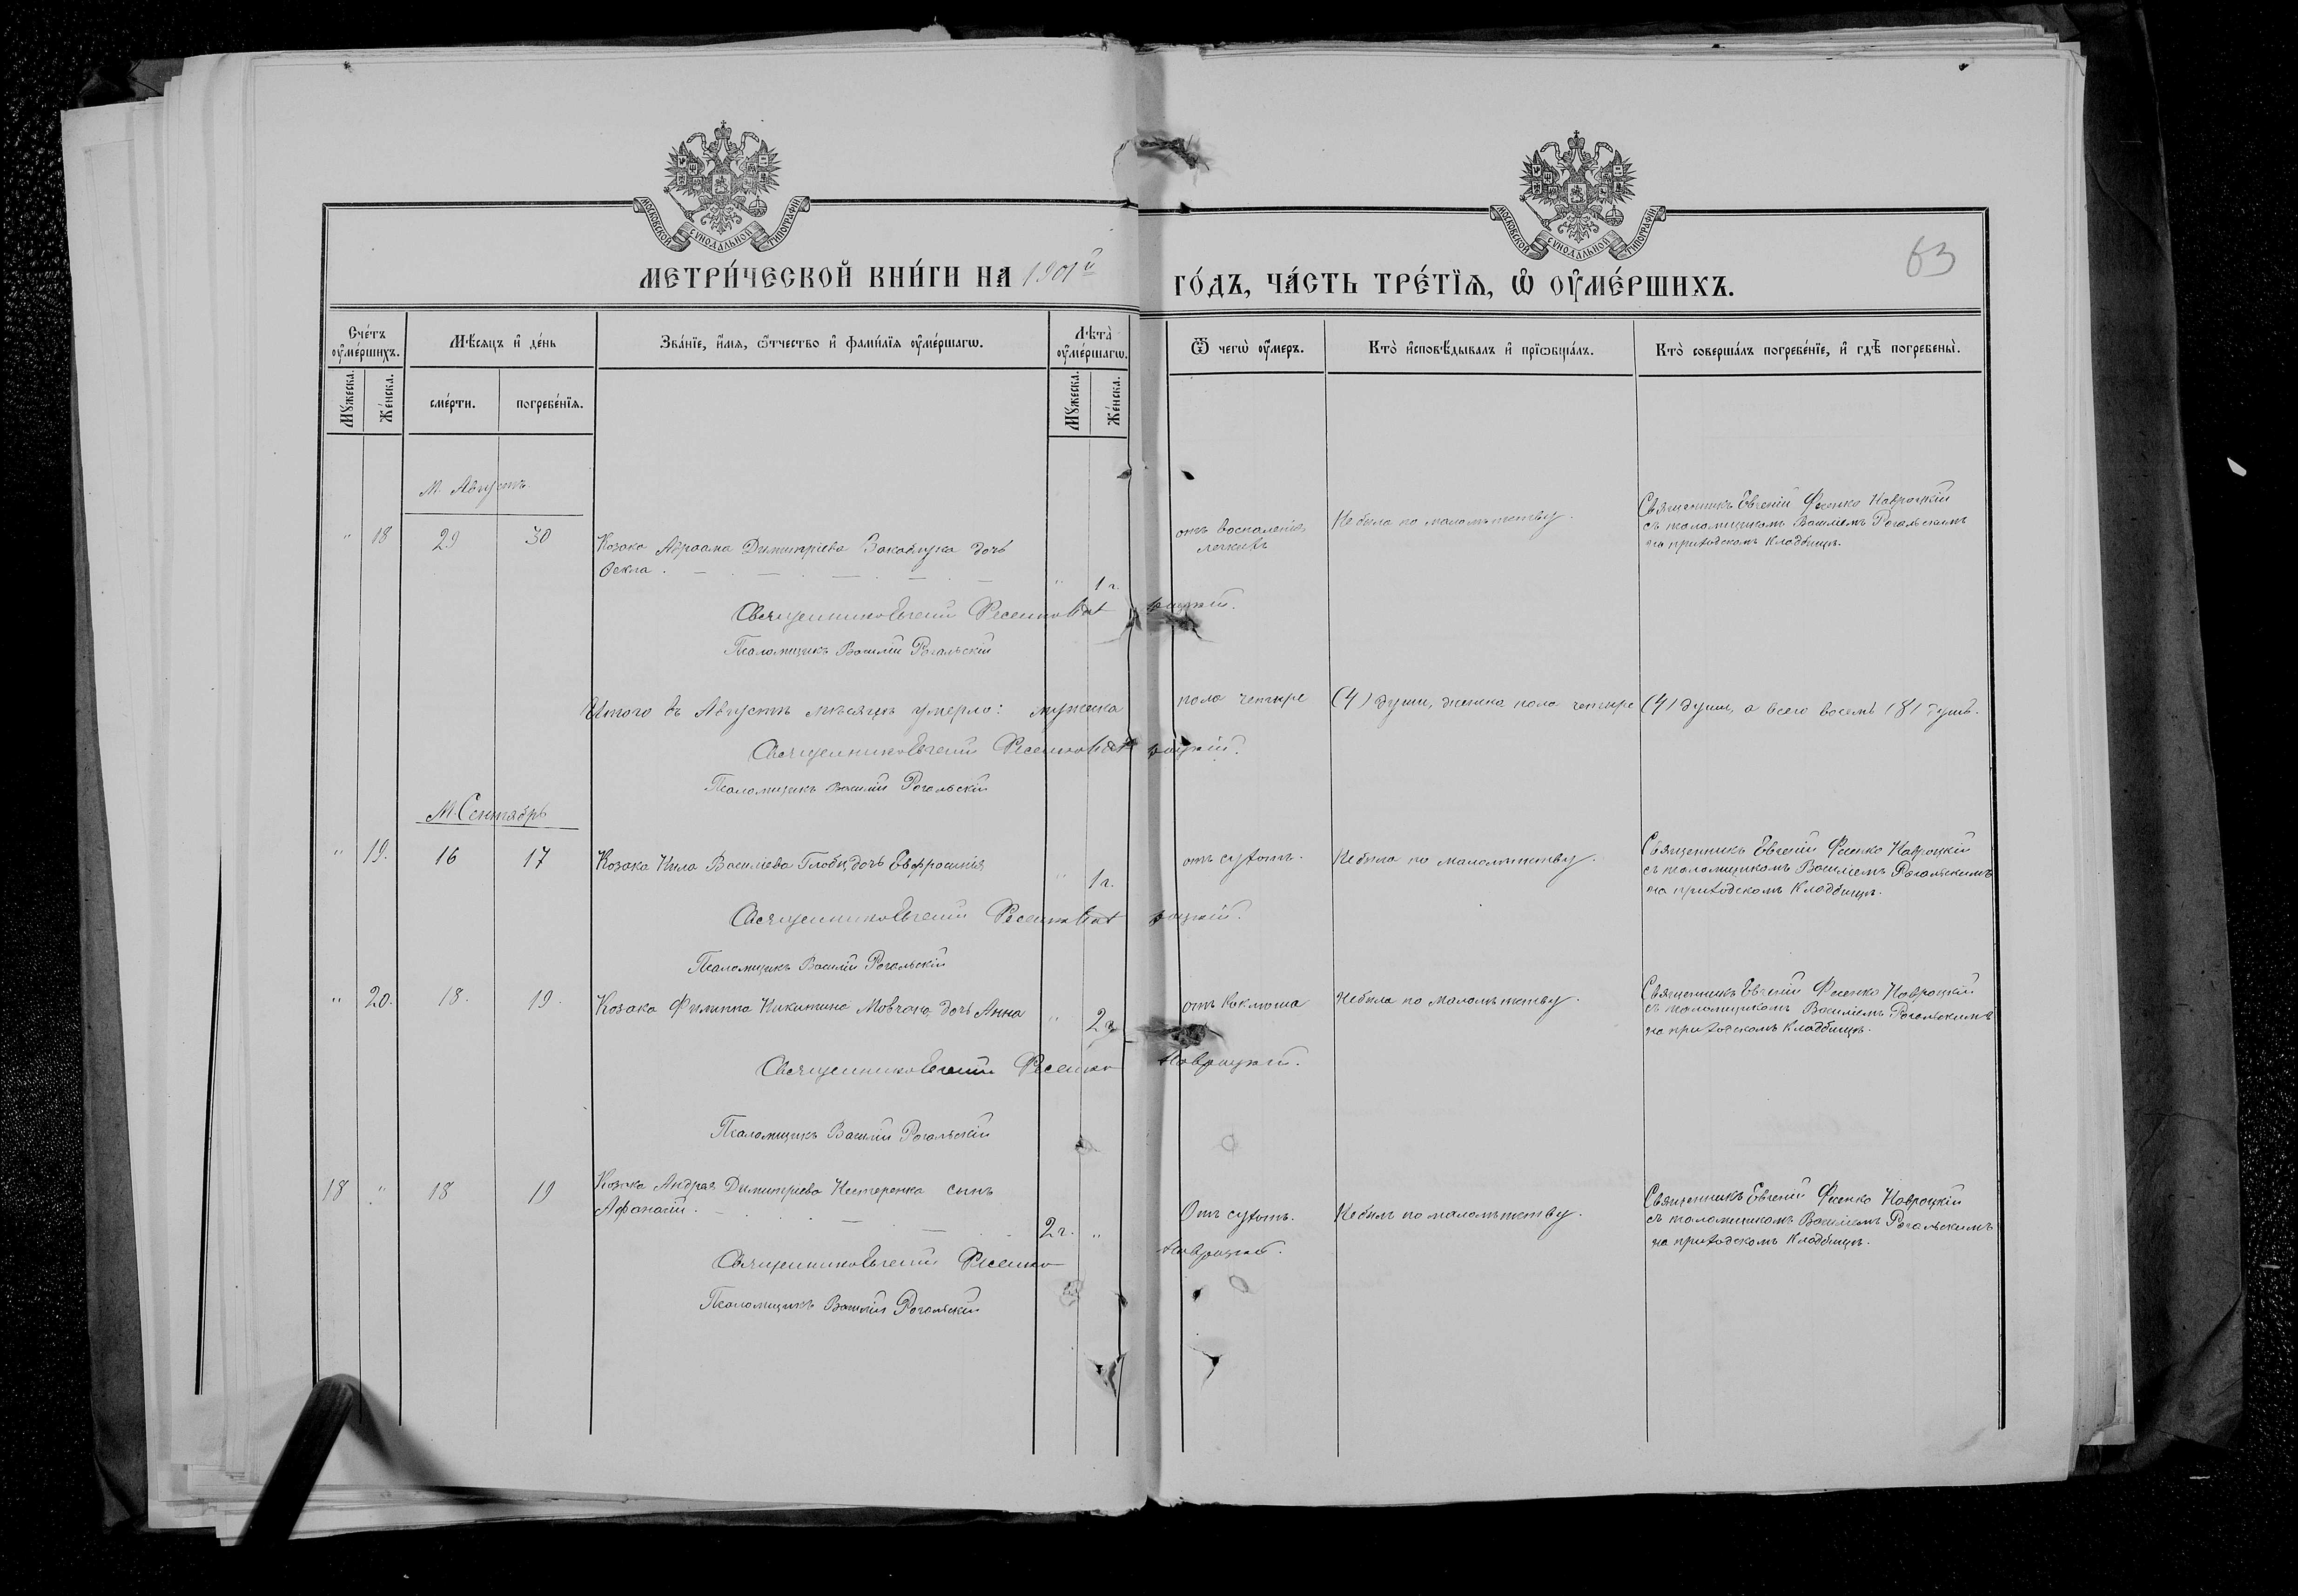 МОСКОВСКОЙ СѴНОДАЛЬНОЙ ТИПОГРАФІИ
МОСКОВСКОЙ СѴНОДАЛЬНОЙ ТИПОГРАФІИ
63
МЕТРИ́ЧЕСКОЙ КНИ́ГИ НА 1901й ГО́ДЪ, ЧА́СТЬ ТРЕ́ТЇѦ, Ѡ҆ ОУ҆МЕ́РШИХЪ.
Сче́тъ оу҆ме́ршихъ.
Мѣ́сяцъ и҆ де́нь
Зва́нїе, и҆́мѧ, ѻ҆́тчество и҆ фами́лїѧ оу҆ме́ршагѡ.
Лѣта̀ оу҆ме́ршагѡ.
Ѿ чегѡ̀ оу҆́меръ.
Кто̀ и҆сповѣ́дывалъ и҆ прїѡбща́лъ.
Кто̀ соверша́лъ погребе́нїе, и҆ гдѣ̀ погребены̀.
Мꙋ́жеска.
Же́нска.
сме́рти.
погребе́нїѧ.
Мꙋ́жеска.
Же́нска.
М. Августъ
" 18 29 30
Козака Авраама Димитріева дочь
Ѳекла.
" 1 г.
отъ воспаленія
легкихъ
Не была по малолѣтству.
Священникъ Евгеній Фесенко Навроцкій
съ псаломщикомъ Василіемъ Рогальскимъ
на приходскомъ кладбищѣ.
Священникъ Евгеній Фесенко Навроцкій.
Псаломщикъ Василій Рогальскій
Итого въ Августѣ мѣсяцѣ умерло: мужеска пола четыре (4) души, женска пола четыре (4) души, а всего восемь (8) душъ.
Священникъ Евгеній Фесенко Навроцкій.
Псаломщикъ Василій Рогальскій
М. Сентябрь
" 19. 16 17
Козака Кила Василіева Глобы, дочь Евфросинія
" 1 г.
отъ сухотъ.
Не была по малолѣтству.
Священникъ Евгеній Фесенко Навроцкій
съ псаломщикомъ Василіемъ Рогальскимъ
на приходскомъ кладбищѣ.
Священникъ Евгеній Фесенко Навроцкій.
Псаломщикъ Василій Рогальскій
" 20. 18. 19.
Козака Филиппа Никитина Мовчана, дочь Анна
" 2 г.
отъ коклюша
Не была по малолѣтству.
Священникъ Евгеній Фесенко Навроцкій
съ псаломщикомъ Василіемъ Рогальскимъ
на приходскомъ кладбищѣ.
Священникъ Евгеній Фесенко Навроцкій.
Псаломщикъ Василій Рогальскій
18 " 18 19
Козака Андрея Димитріева Нестеренка сынъ
Афанасій.
2 г. "
Отъ сухотъ.
Не былъ по малолѣтству.
Священникъ Евгеній Фесенко Навроцкій
съ псаломщикомъ Василіемъ Рогальскимъ
на приходскомъ кладбищѣ.
Священникъ Евгеній Фесенко Навроцкій.
Псаломщикъ Василій Рогальскій